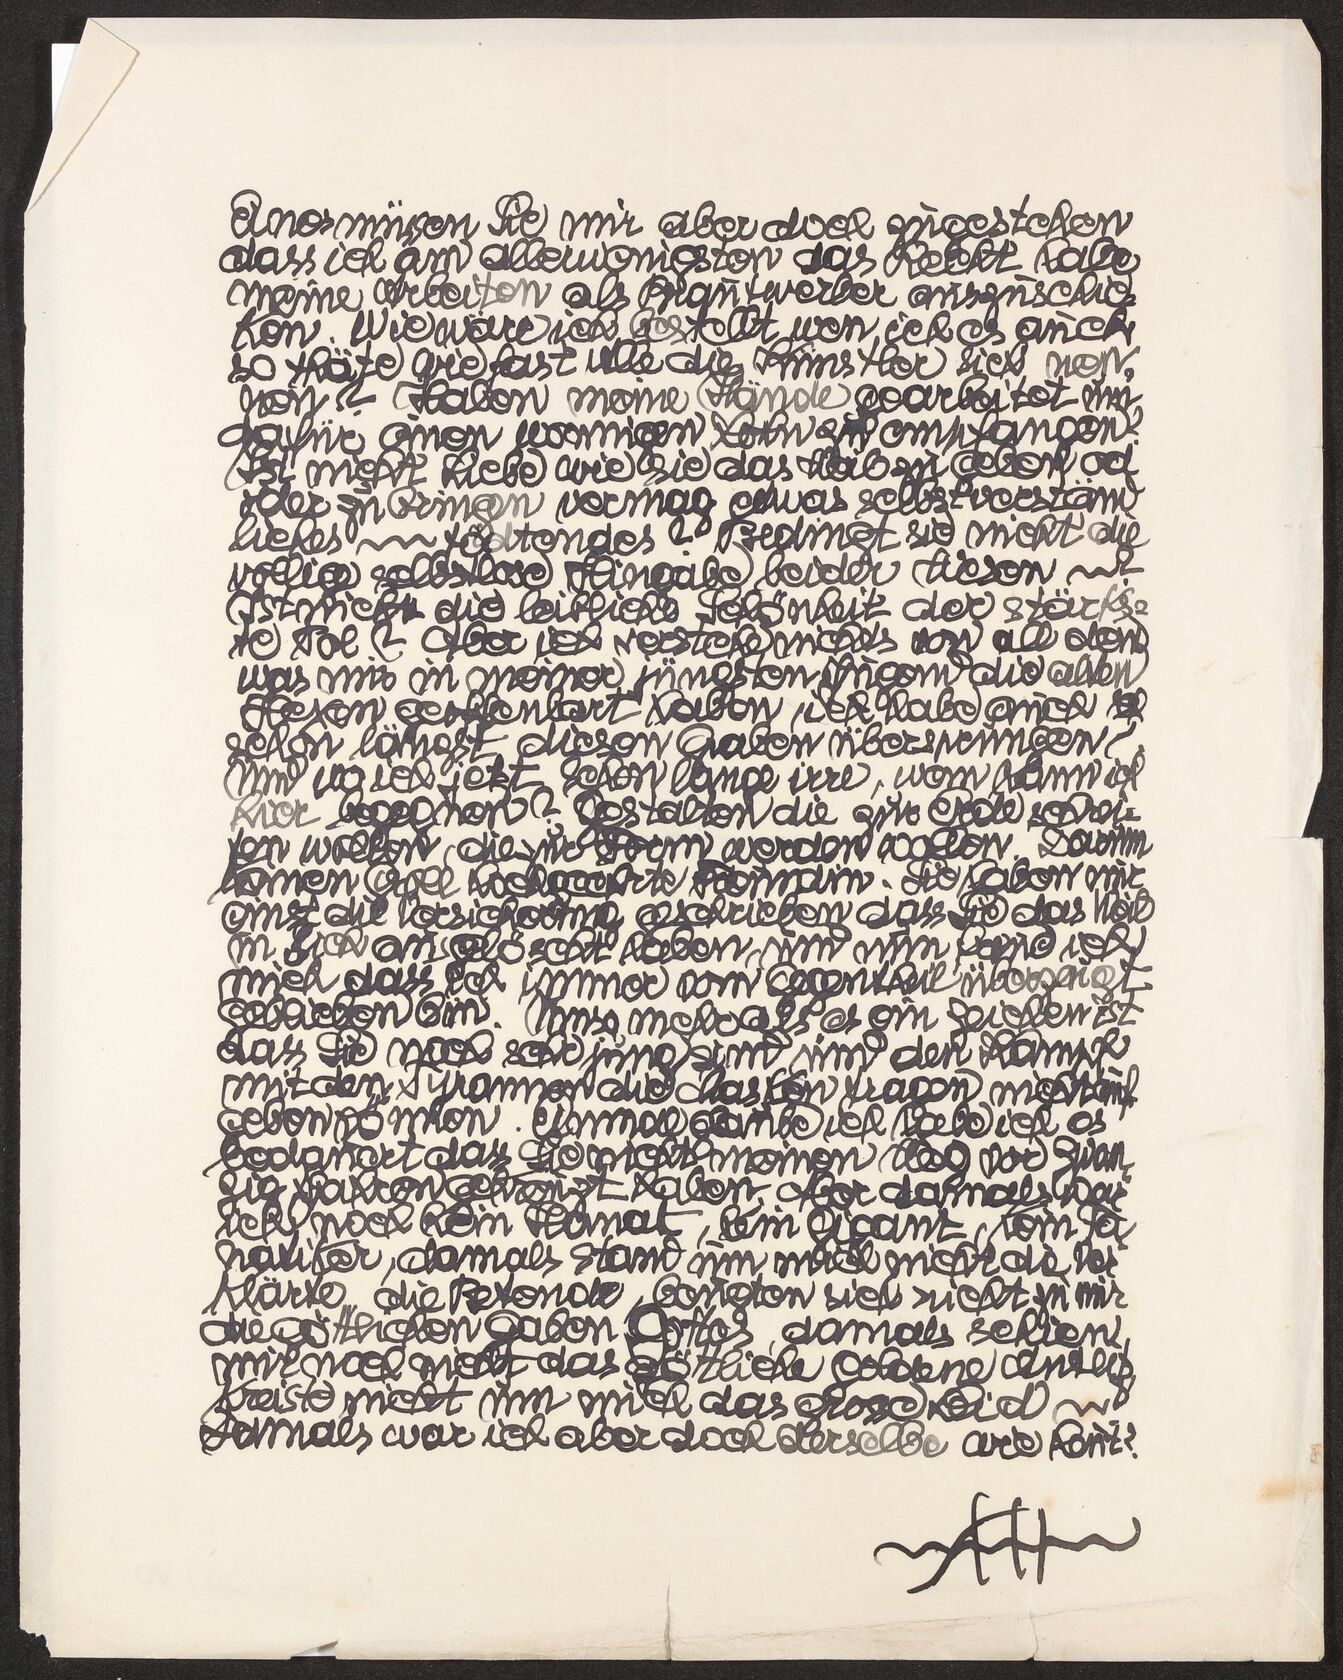 Eines müssen Sie mir aber doch zugestehen
dass ich am allerwenigsten das Recht habe
meine Arbeiten als Brautwerber auszuschic-
ken. Wie wäre ich bestellt wen ich es auch
so thäte wie fast alle die Künstler sich nen,
nen? Haben meine Hände gearbeitet um
dafür einen wonnigen Lohn zu empfangen?
Ist nicht Liebe wie Sie das Weib zu geben od
oder zu bringen vermag etwas selbstverständ
liches tödtendes? Bedingt sie nicht die
völlige selbstlose Hingabe beider Wesen ?
Ist nicht die leibliche Schönheit der stärks-
te Pol? Aber ich verstehe nichts von all dem
was mir in meiner jüngsten Jugend die alten
Hexen geoffenbart haben, ich habe auch
schon längst diesen Graben übersprungen
und wo ich jetzt schon lange irre, wem kann ich
hier begegnen? Gestalten die zur Erde schrei-
ten wollen, die zur Form werden wollen. Darum
können hochgeehrte Freundin. Sie haben mir
einst die Versicherung geschrieben dass Sie das Weib
in Sich ausgelöscht haben, und nun fand ich
mich dass ich immer vom Gegentheil überzeugt
geblieben bin. Umso mehr als es ein Zeichen ist
dass Sie noch sehr jung sind und den Kampf
mit den Tyrannen die Masken tragen nicht auf
geben können. Einmal glaube ich habe ich es
bedauert dass Sie nicht meinen Weg vor zwan,
zig Jahren gekreuzt haben. Aber damals war
ich noch kein Heinat, kein Gigant, kein Fa
natiker, damals stand um mich nicht die Ver
klärte, die Betende, beugten sich nicht zu mir
die göttlichen Gaben Gottes, damals schien
mir noch nicht das göttliche geborene Antlitz,
kreiste nicht um mich das grosse Leid
damals war ich aber doch derselbe wie heut?